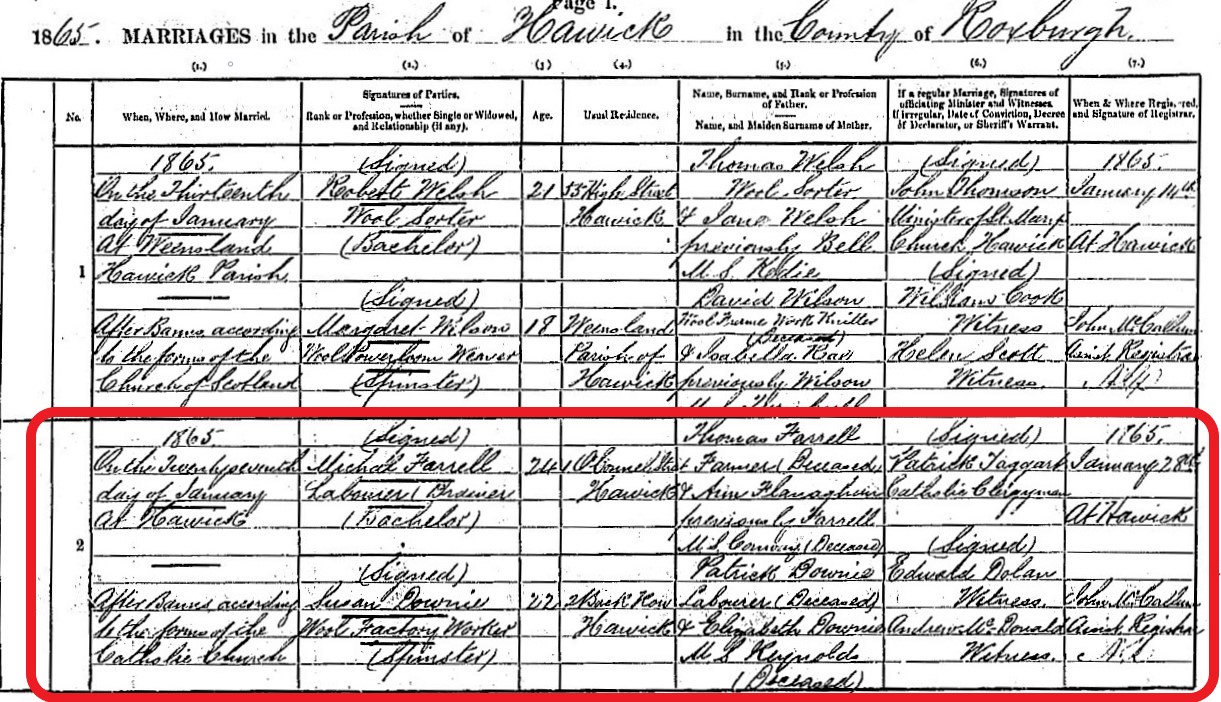 Page 1.
1865. MARRIAGES in the Parish of Hawick in the County of Roxburgh.
(1.) (2.) (3.) (4.) (5.) (6.) (7.)
No.
When, Where, and How Married.
Signatures of Parties.
Rank or Profession, whether Single or Widowed,
and Relationship (if any).
Age.
Usual Residence.
Name, Surname, and Rank or Profession
of Father.
Name, and Maiden Surname of Mother.
If a regular Marriage, Signatures of
officiating Minister and Witnesses.
If irregular, Date of Conviction, Decree
of Declarator, or Sheriff's Warrant.
When & Where Registered,
and Signature of Registrar.
1
1865.
On the Thirteenth
day of January
At Weensland
Hawick Parish.
After Banns according
to the forms of the
Church of Scotland
(Signed)
Robert Welsh
Wool Sorter
(Bachelor)
(Signed)
Margaret Wilson
Wool Powerloom Weaver
(Spinster)
21
18
53 High Street
Hawick
Weensland
Parish of
Hawick
Thomas Welsh
Wool Sorter
& Jane Welsh
previously Bell
M.S. Kedie
David Wilson
Wool Frame Work Knitter
(Deceased)
& Isabella
previously Wilson
M.S.
(Signed)
John Thomson
Minister of St. Mary's
Church Hawick
(Signed)
William Cook
Witness
Helen Scott
Witness.
1865.
January 14th
At Hawick
John McCallum
Assist. Registrar
2
1865.
On the Twenty seventh
day of January
At Hawick
After Banns according
to the forms of the
Catholic Church
(Signed)
Michal Farrell
Labourer (Drainer
(Bachelor)
(Signed)
Susan Downie
Wool Factory Worker
(Spinster)
24
22
1 O'Connel Street
Hawick
2 Back Row
Hawick
Thomas Farrell
Farmer (Deceased)
& Ann Flanaghan
previously Farrell
M.S. Conway (Deceased)
Patrick Downie
Labourer (Deceased)
& Elizabeth Downie
M.S. Reynolds
(Deceased)
(Signed)
Patrick Taggart
Catholic Clergyman
(Signed)
Edward Dolan
Witness.
Andrew McDonald
Witness.
1865.
January 28th
At Hawick
John McCallum
Assist Registrar